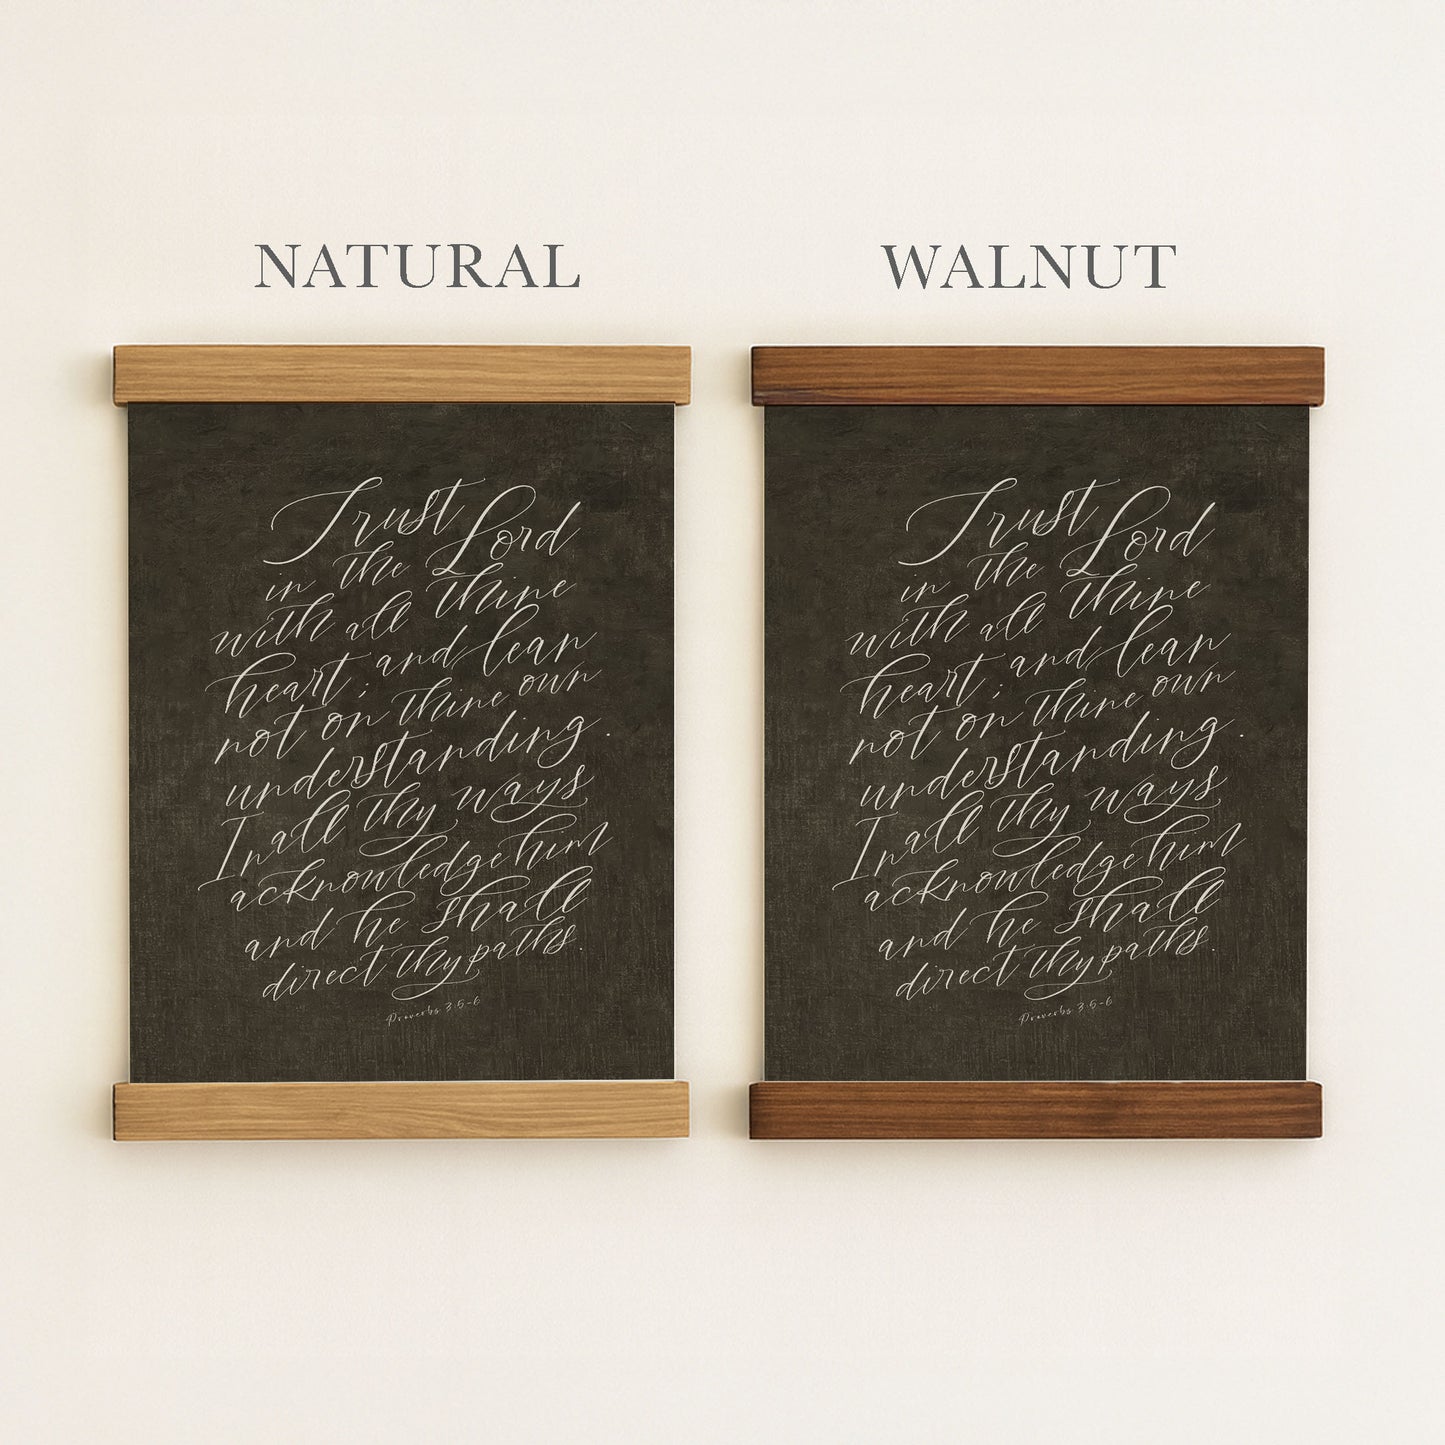 NATURAL
WALNUT
Trust
in the Lord
with all thine
heart; and lean
not on thine own
understanding.
In all thy ways
acknowledge him
and he shall
direct thy paths.
Proverbs 3:5-6
Trust
in the Lord
with all thine
heart; and lean
not on thine own
understanding.
In all thy ways
acknowledge him
and he shall
direct thy paths.
Proverbs 3:5-6